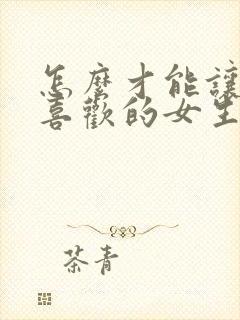 怎麼才能讓
喜歡的女生
茶青